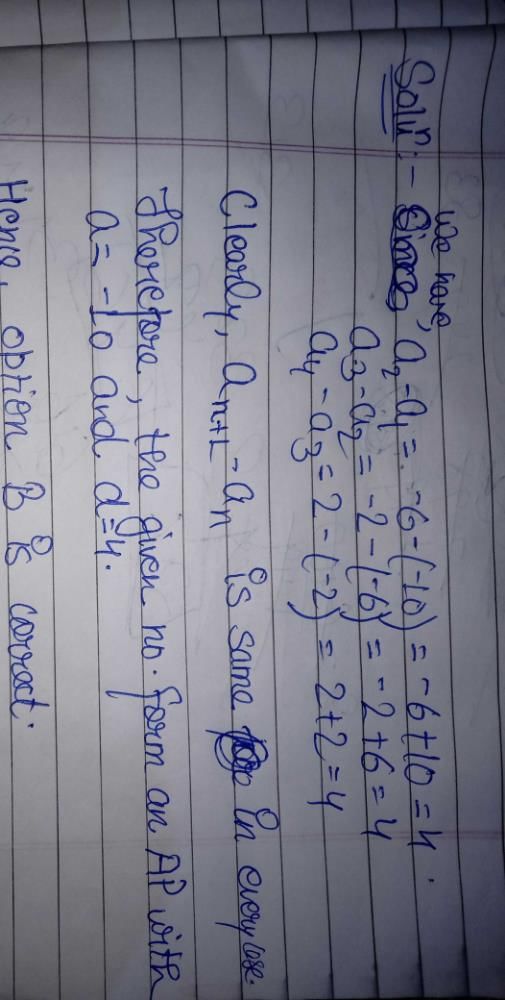 Solun :- We have, a₂-a₁ = -6-(-10) = -6+10 = 4.
a₃-a₂ = -2-(-6) = -2+6 = 4
a₄-a₃ = 2-(-2) = 2+2 = 4
Clearly, aₙ₊₁-aₙ is same in every case.
Therefore, the given no. form an AP with
a = -10 and d=4.
Hence, option B is correct.